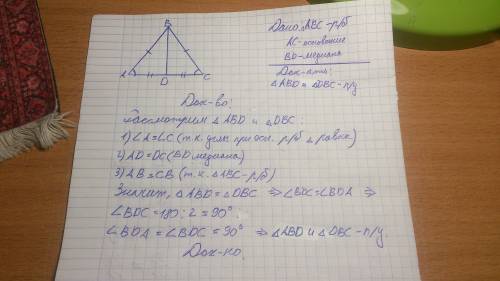 B
A
D
C
Дано: ABC - р/б
AC - основание
BD - медиана
Док-ать:
△ABD и △DBC - п/у.
Док-во:
Рассмотрим △ABD и △DBC:
1) ∠A = ∠C (т.к. углы при осн. р/б △ равны)
2) AD = DC (BD медиана)
3) AB = CB (т.к. △ABC - р/б)
Значит, △ABD = △DBC ⇒ ∠BDC = ∠BDA ⇒
∠BDC = 180 : 2 = 90°.
∠BDA = ∠BDC = 90° ⇒ △ABD и △DBC - п/у.
Док-но.